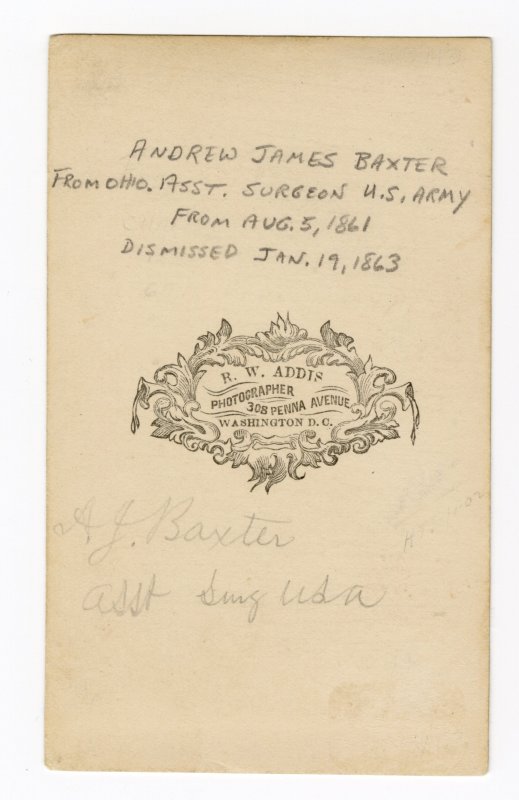 ANDREW JAMES BAXTER
FROM OHIO. ASST. SURGEON U.S. ARMY
FROM AUG. 5, 1861
DISMISSED JAN. 19, 1863
R. W. ADDIS
PHOTOGRAPHER
308 PENNA AVENUE
WASHINGTON D.C.
A J. Baxter
asst Surg USA